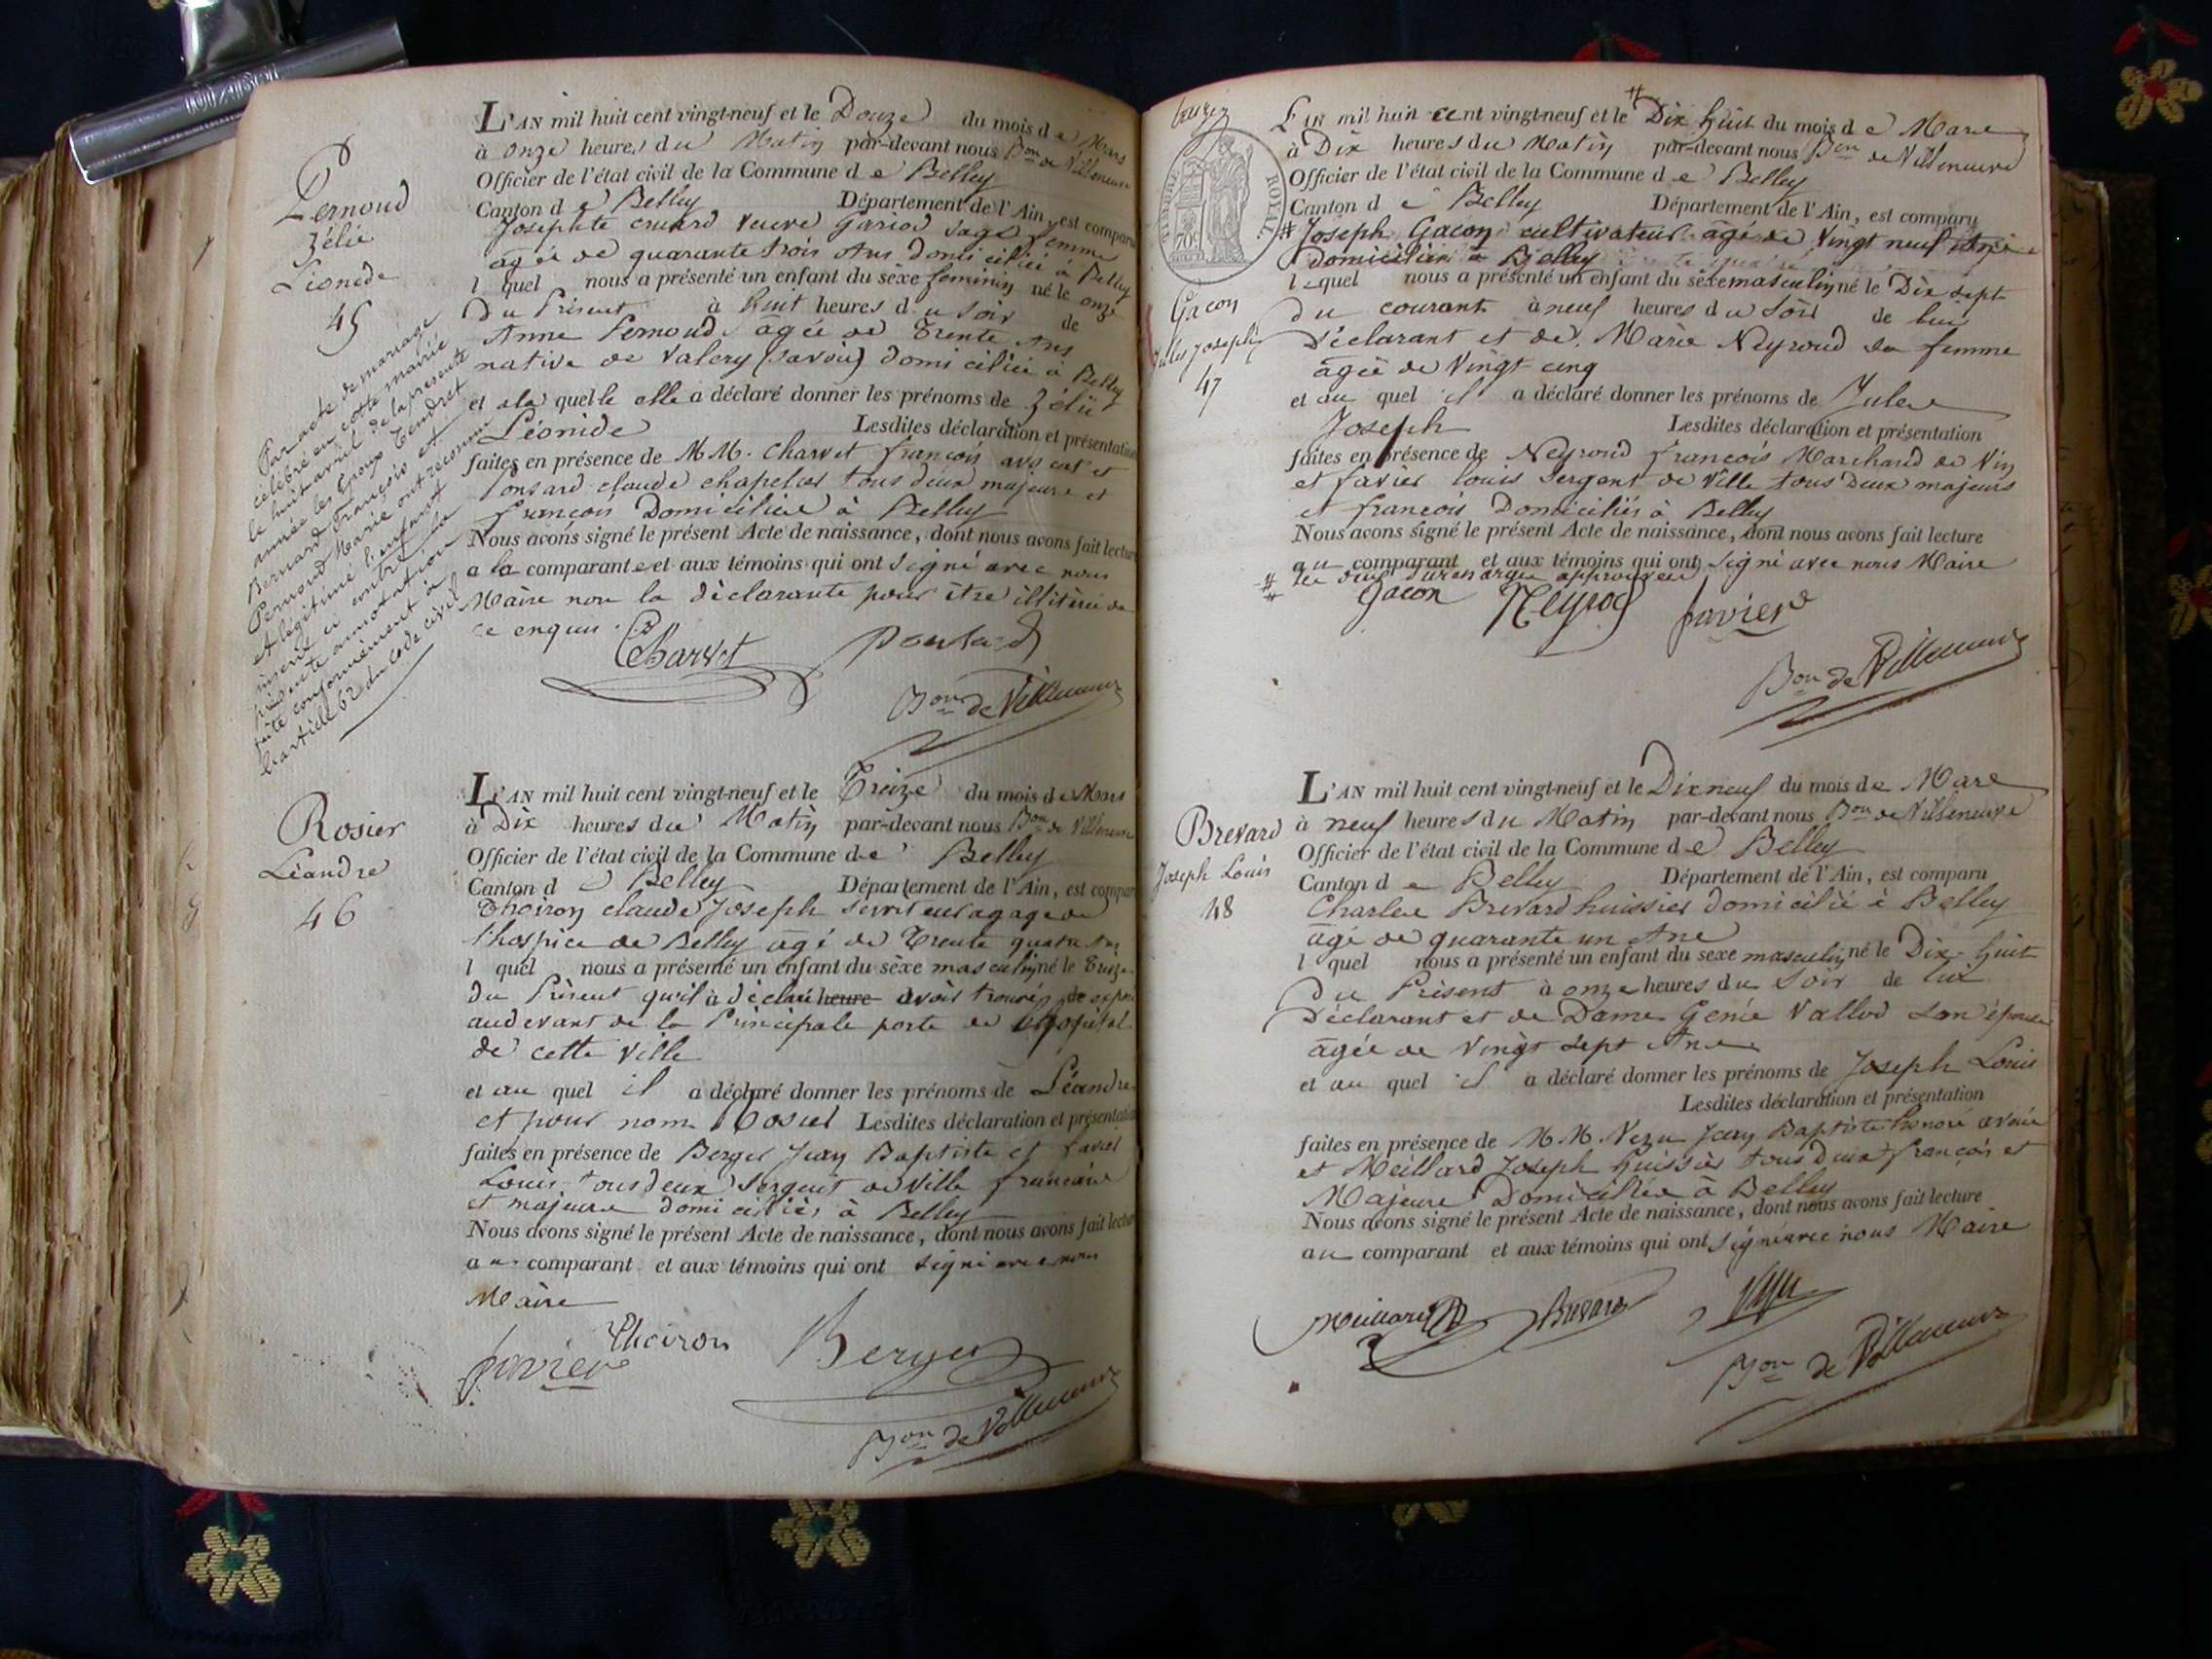 Pernoud
Zélie
Léonide
45
Par acte de mariage
célébré en cette mairie
le huit avril de la présente
année les époux Tendret
Bernard François et
Pernoud Marie ont reconnu
et légitimé l'enfant
inscrit ci contre la
présente annotation
faite conformément à
l'article 62 du code civil
L'AN mil huit cent vingt-neuf et le Douze du mois de Mars
à onze heures du Matin par-devant nous Bon de Villeneuve
Officier de l'état civil de la Commune de Belley
Canton de Belley Département de l'Ain, est comparu
Josephte cruard veuve Gariod sage femme
agée de quarante trois Ans domiciliée à Belley
l quel nous a présenté un enfant du sèxe feminin né le onze
Du Présent à huit heures du Soir de
Anne Pernoud agée de Trente Ans
native de Valery (Savoie) domiciliée à Belley
et a la quelle elle a déclaré donner les prénoms de Zélie
Léonide Lesdites déclaration et présentation
faites en présence de M M. Charvet françois avocat et
Ponsard claude chapelier tous deux majeurs et
françois Domiciliés à Belley
Nous avons signé le présent Acte de naissance, dont nous avons fait lecture
a la comparante et aux témoins qui ont signé avec nous
Maire non la déclarante pour être illitérée de
ce enquis.
Charvet Ponsard
Bon de Villeneuve
Rosier
Léandre
46
L'AN mil huit cent vingt-neuf et le Treize du mois de Mars
à Dix heures du Matin par-devant nous Bon de Villeneuve
Officier de l'état civil de la Commune de Belley
Canton de Belley Département de l'Ain, est comparu
Thoiron claude Joseph serviteur à gage de
l'hospice de Belley agé de Trente quatre Ans
l quel nous a présenté un enfant du sèxe masculin né le Treize
du Présent qu'il à déclaré heure avoir trouvé exposé
audevant de la Principale porte de l'hopital
de cette Ville
et au quel il a déclaré donner les prénoms de Léandre
et pour nom Rosier Lesdites déclaration et présentation
faites en présence de Berger Jean Baptiste et favier
Louis tous deux Sergent de Ville français
et majeurs domiciliés à Belley
Nous avons signé le présent Acte de naissance, dont nous avons fait lecture
au comparant et aux témoins qui ont signé avec nous
Maire
Thoiron Berger
favier
Bon de Villeneuve
TIMBRE ROYAL
70c
Gacon
Jules Joseph
47
L'AN mil huit cent vingt-neuf et le Dix huit du mois de Mars
à Dix heures du Matin par-devant nous Bon de Villeneuve
Officier de l'état civil de la Commune de Belley
Canton de Belley Département de l'Ain, est comparu
# Joseph Gacon cultivateur agé de Vingt neuf
domicilié à Belley
lequel nous a présenté un enfant du sèxe masculin né le Dix sept
du courant à neuf heures du Soir de lui
Déclarant et de Marie Neyroud sa femme
agée de Vingt cinq
et au quel il a déclaré donner les prénoms de Jules
Joseph Lesdites déclaration et présentation
faites en présence de Neyroud françois Marchand de Vin
et favier louis Sergent de Ville tous deux majeurs
et françois Domiciliés à Belley
Nous avons signé le présent Acte de naissance, dont nous avons fait lecture
au comparant et aux témoins qui ont signé avec nous Maire
Gacon Neyrod favier
Bon de Villeneuve
Brevard
Joseph Louis
48
L'AN mil huit cent vingt-neuf et le Dix neuf du mois de Mars
à neuf heures du Matin par-devant nous Bon de Villeneuve
Officier de l'état civil de la Commune de Belley
Canton de Belley Département de l'Ain, est comparu
Charles Brevard huissier domicilié à Belley
agé de quarante un Ans
l quel nous a présenté un enfant du sexe masculin né le Dix-huit
Du Présent à onze heures du Soir de lui
Déclarant et de Dame Génie Vallod son épouse
agée de Vingt sept Ans
et au quel il a déclaré donner les prénoms de Joseph Louis
Lesdites déclaration et présentation
faites en présence de M M. Vezu Jean Baptiste honoré avoué
et Meillard Joseph huissier tous deux françois et
Majeurs Domiciliés à Belley
Nous avons signé le présent Acte de naissance, dont nous avons fait lecture
au comparant et aux témoins qui ont signé avec nous Maire
Meillard Brevard Vezu
Bon de Villeneuve